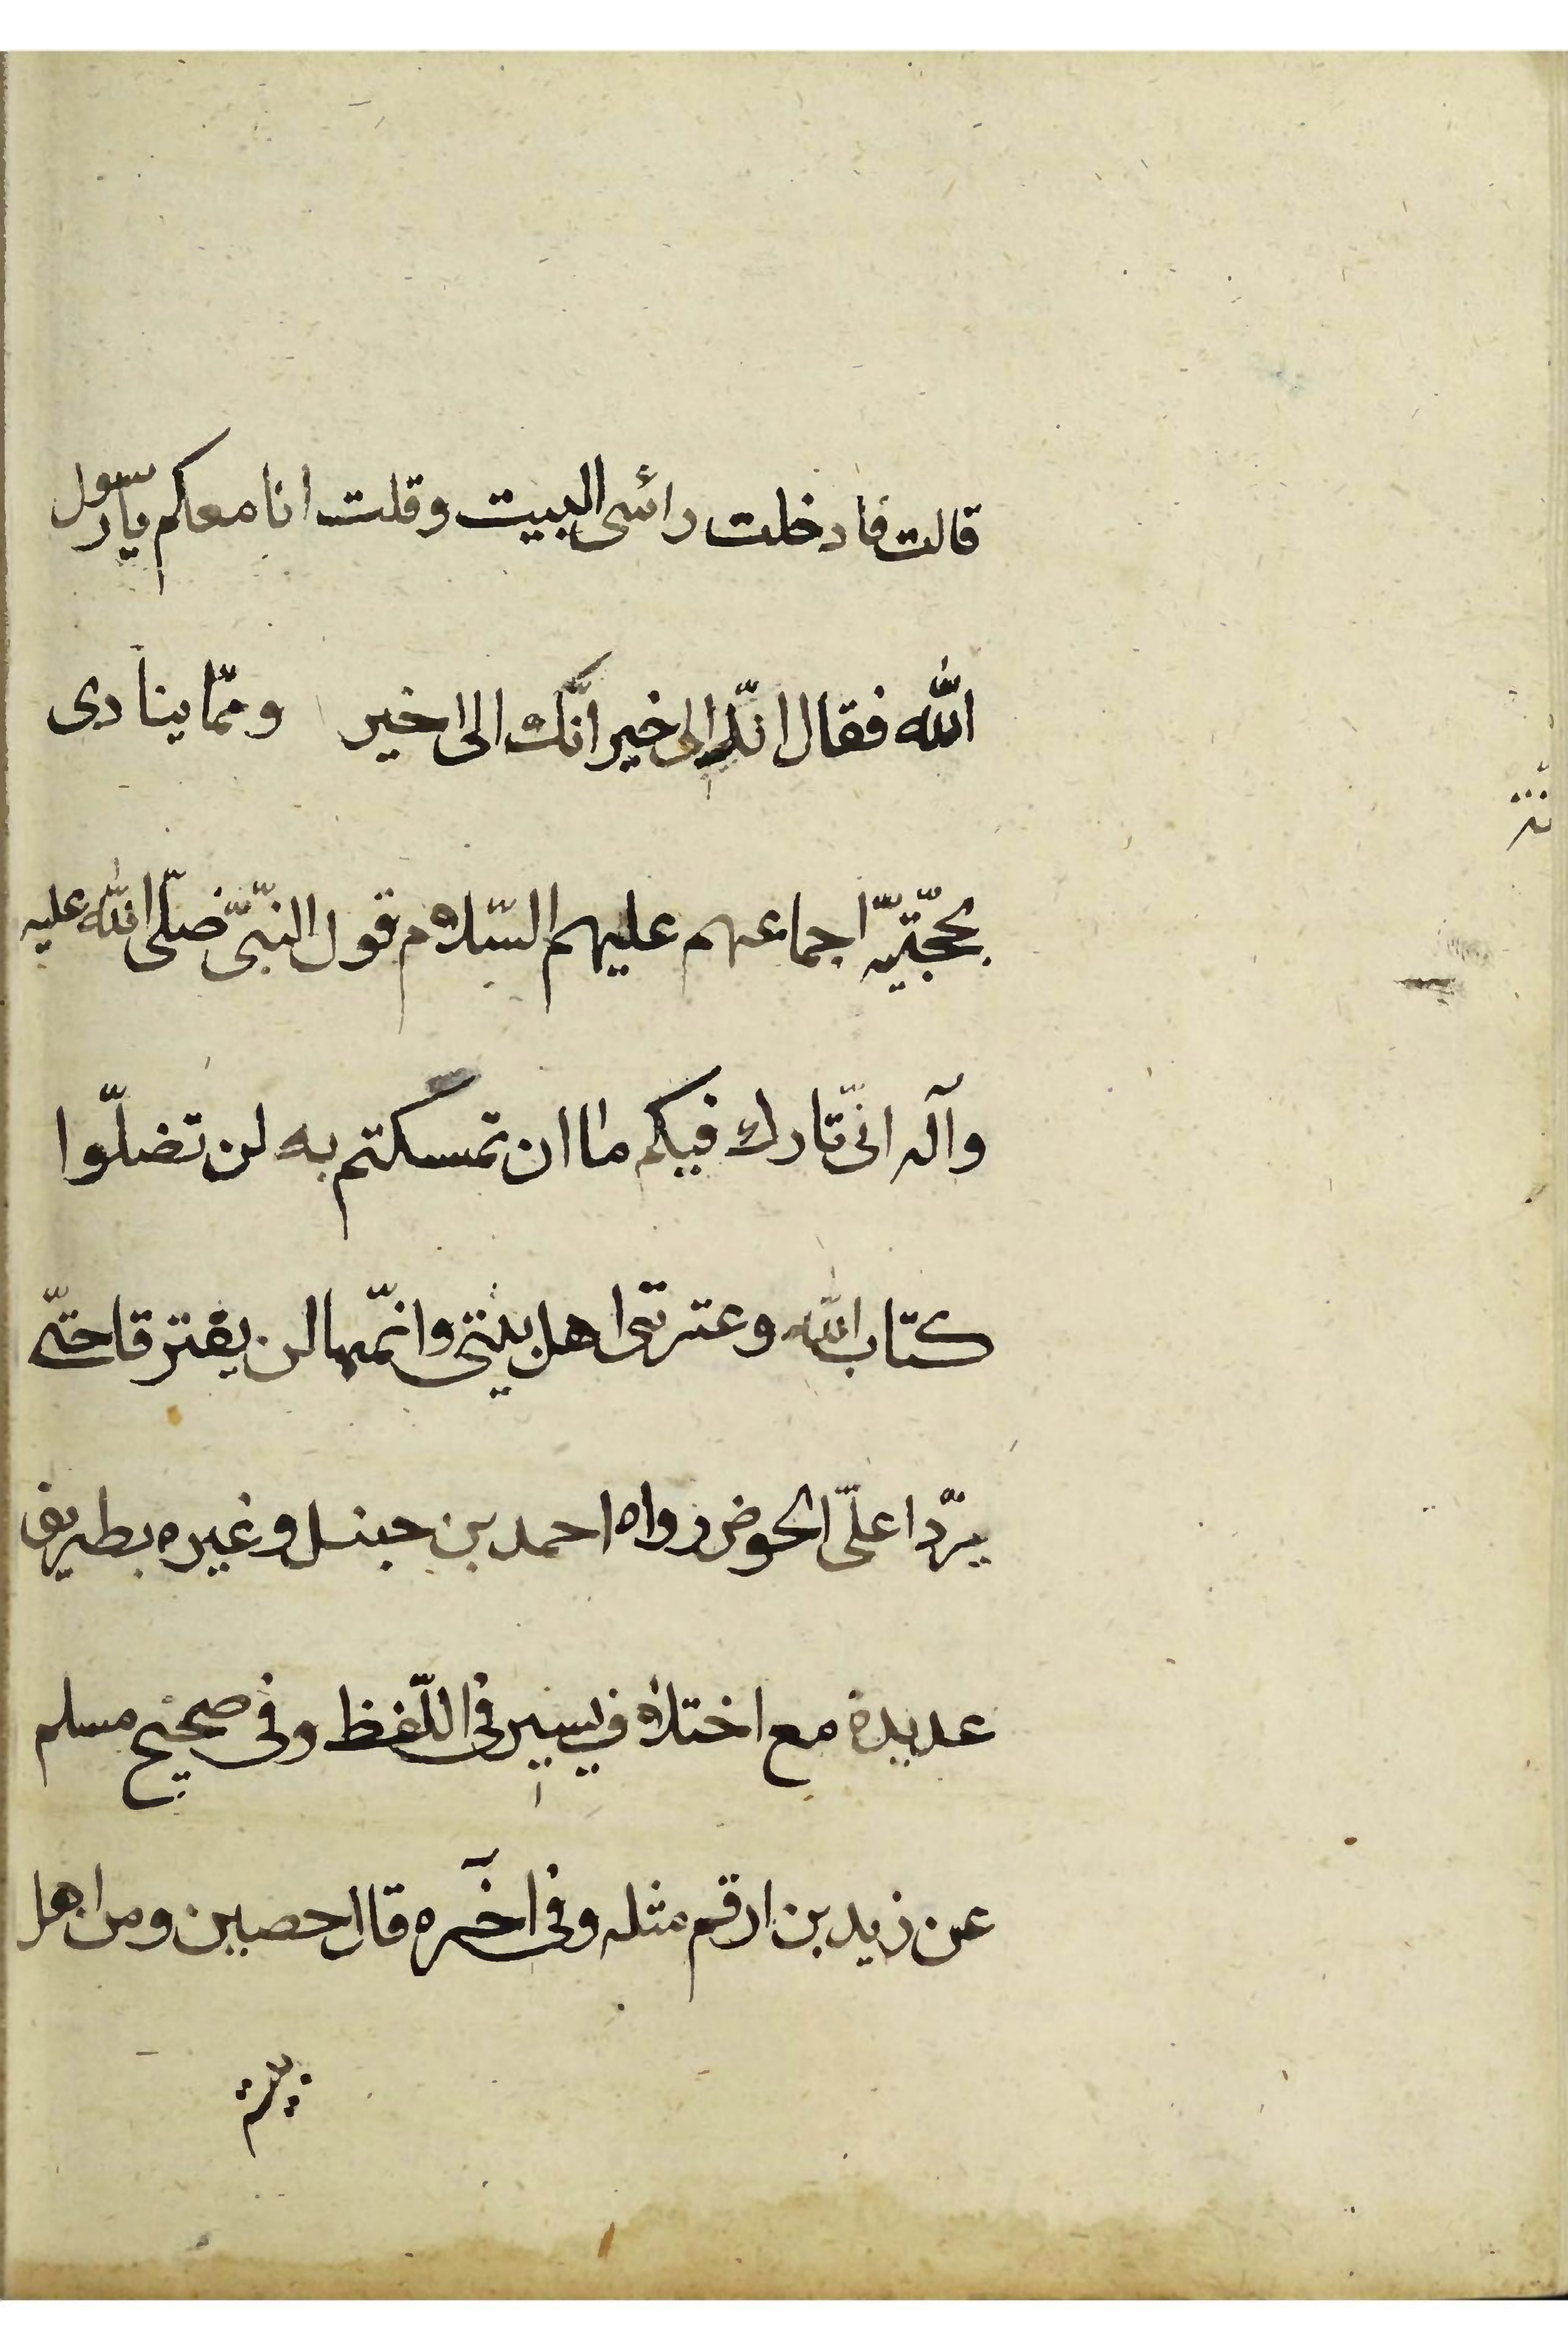 قالت فادخلت رائسى البيت وقلت انا معكم يا رسول
الله فقال انك الى خير انّك الى اخير ومّما ينادى
بحجّتيّه اجماعهم عليهم السّلام قول النّبىّ صلّى الله عليه
وآله انّى تارك فيكم ما ان تمسكتم به لن تضلّوا
كتاب الله وعترتى اهل بيتى وانّهما لن يفترقا حتّى
يرّدا علىّ الحوض رواه احمد بن حنبل وغيره بطريق
عديدة مع اختلاف يسير فى اللّفظ وفى صحيح مسلم
عن زيد بن ارقم مثله وفى اخٓره قال حصين ومن اهل
بيته